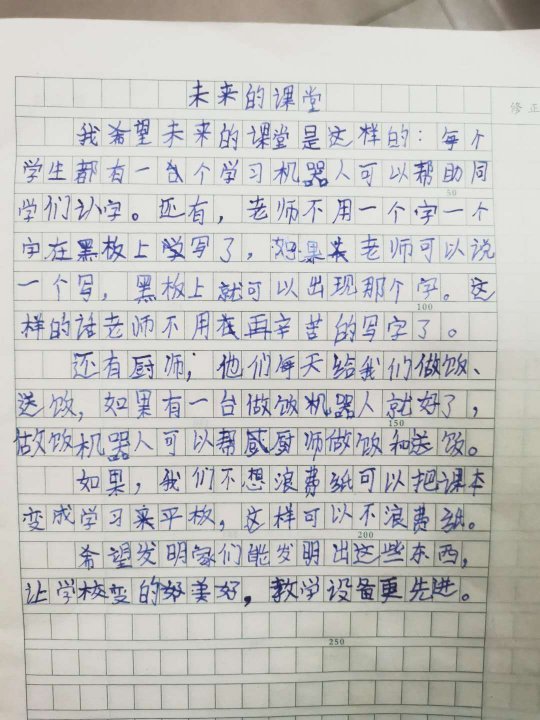 未来的课堂
修正
我希望未来的课堂是这样的：每个
学生都有一台个学习机器人可以帮助同
50
学们认字。还有，老师不用一个字一个
字在黑板上写了，如果老师可以说
一个写，黑板上就可以出现那个字。这
100
样的话老师不用再辛苦的写字了。
还有厨师，他们每天给我们做饭、
送饭，如果有一台做饭机器人就好了，
150
做饭机器人可以帮厨师做饭和送饭。
如果，我们不想浪费纸可以把课本
变成学习平板，这样可以不浪费纸。
200
希望发明家们能发明出这些东西，
让学校变的美好，教学设备更先进。
250